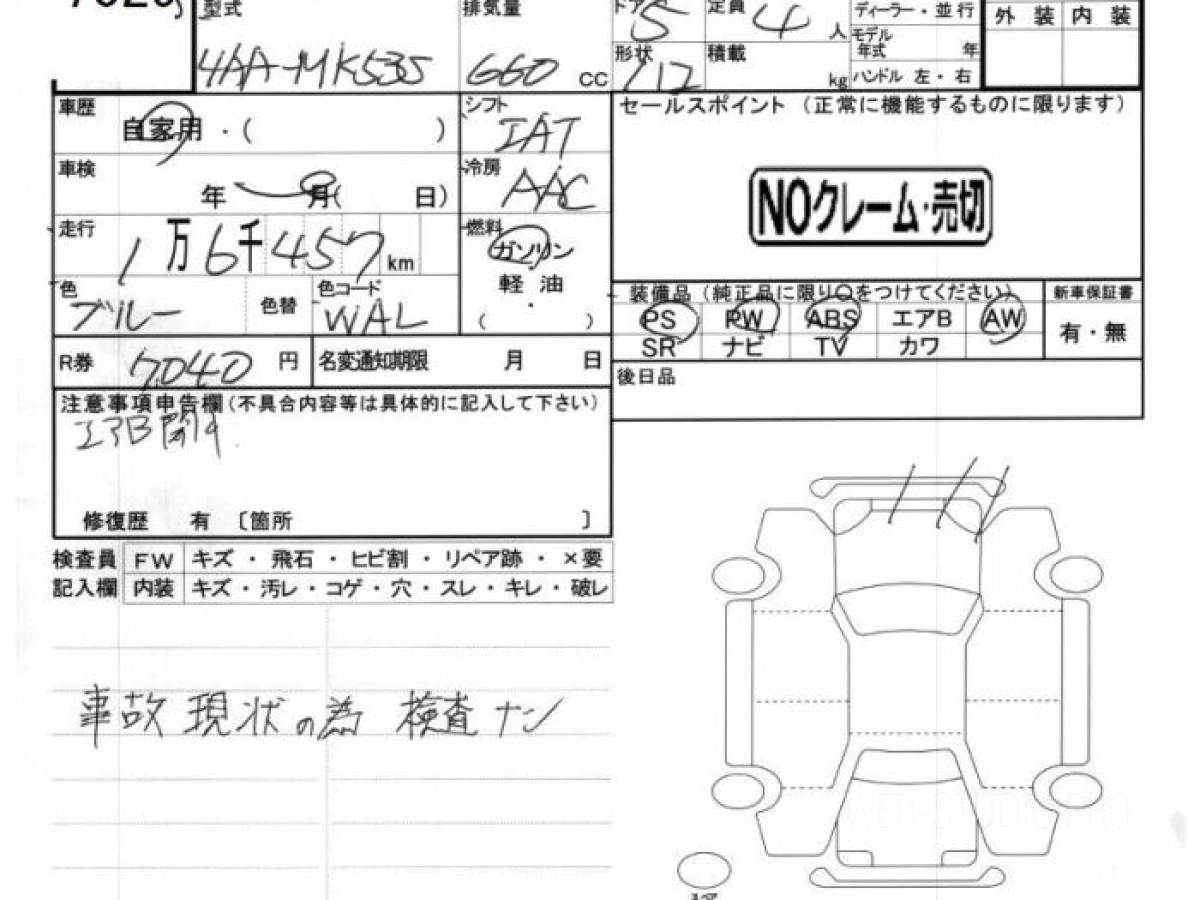 型式 排気量 ドア 5 定員 4 人 ディーラー・並行 外装 内装
モデル年式 年
4AA-MK53S 660 cc 形状 112 積載 kg ハンドル 左・右
車歴 自家用・( ) シフト IAT セールスポイント (正常に機能するものに限ります)
車検 年 月( 日) 冷房 AAC
NOクレーム・売切
走行 1万6千457km 燃料 ガソリン
軽油
・
( )
色 ブルー 色替 色コード WAL
装備品 (純正品に限り○をつけてください) 新車保証書
PS PW ABS エアB AW 有・無
SR ナビ TV カワ
R券 7040 円 名変通知期限 月 日
後日品
注意事項申告欄(不具合内容等は具体的に記入して下さい)
エアB開き
修復歴 有 〔箇所 〕
検査員 FW キズ・飛石・ヒビ割・リペア跡・×要
記入欄 内装 キズ・汚レ・コゲ・穴・スレ・キレ・破レ
事故現状の為 検査ナシ
WEB-STUDIO.PRO